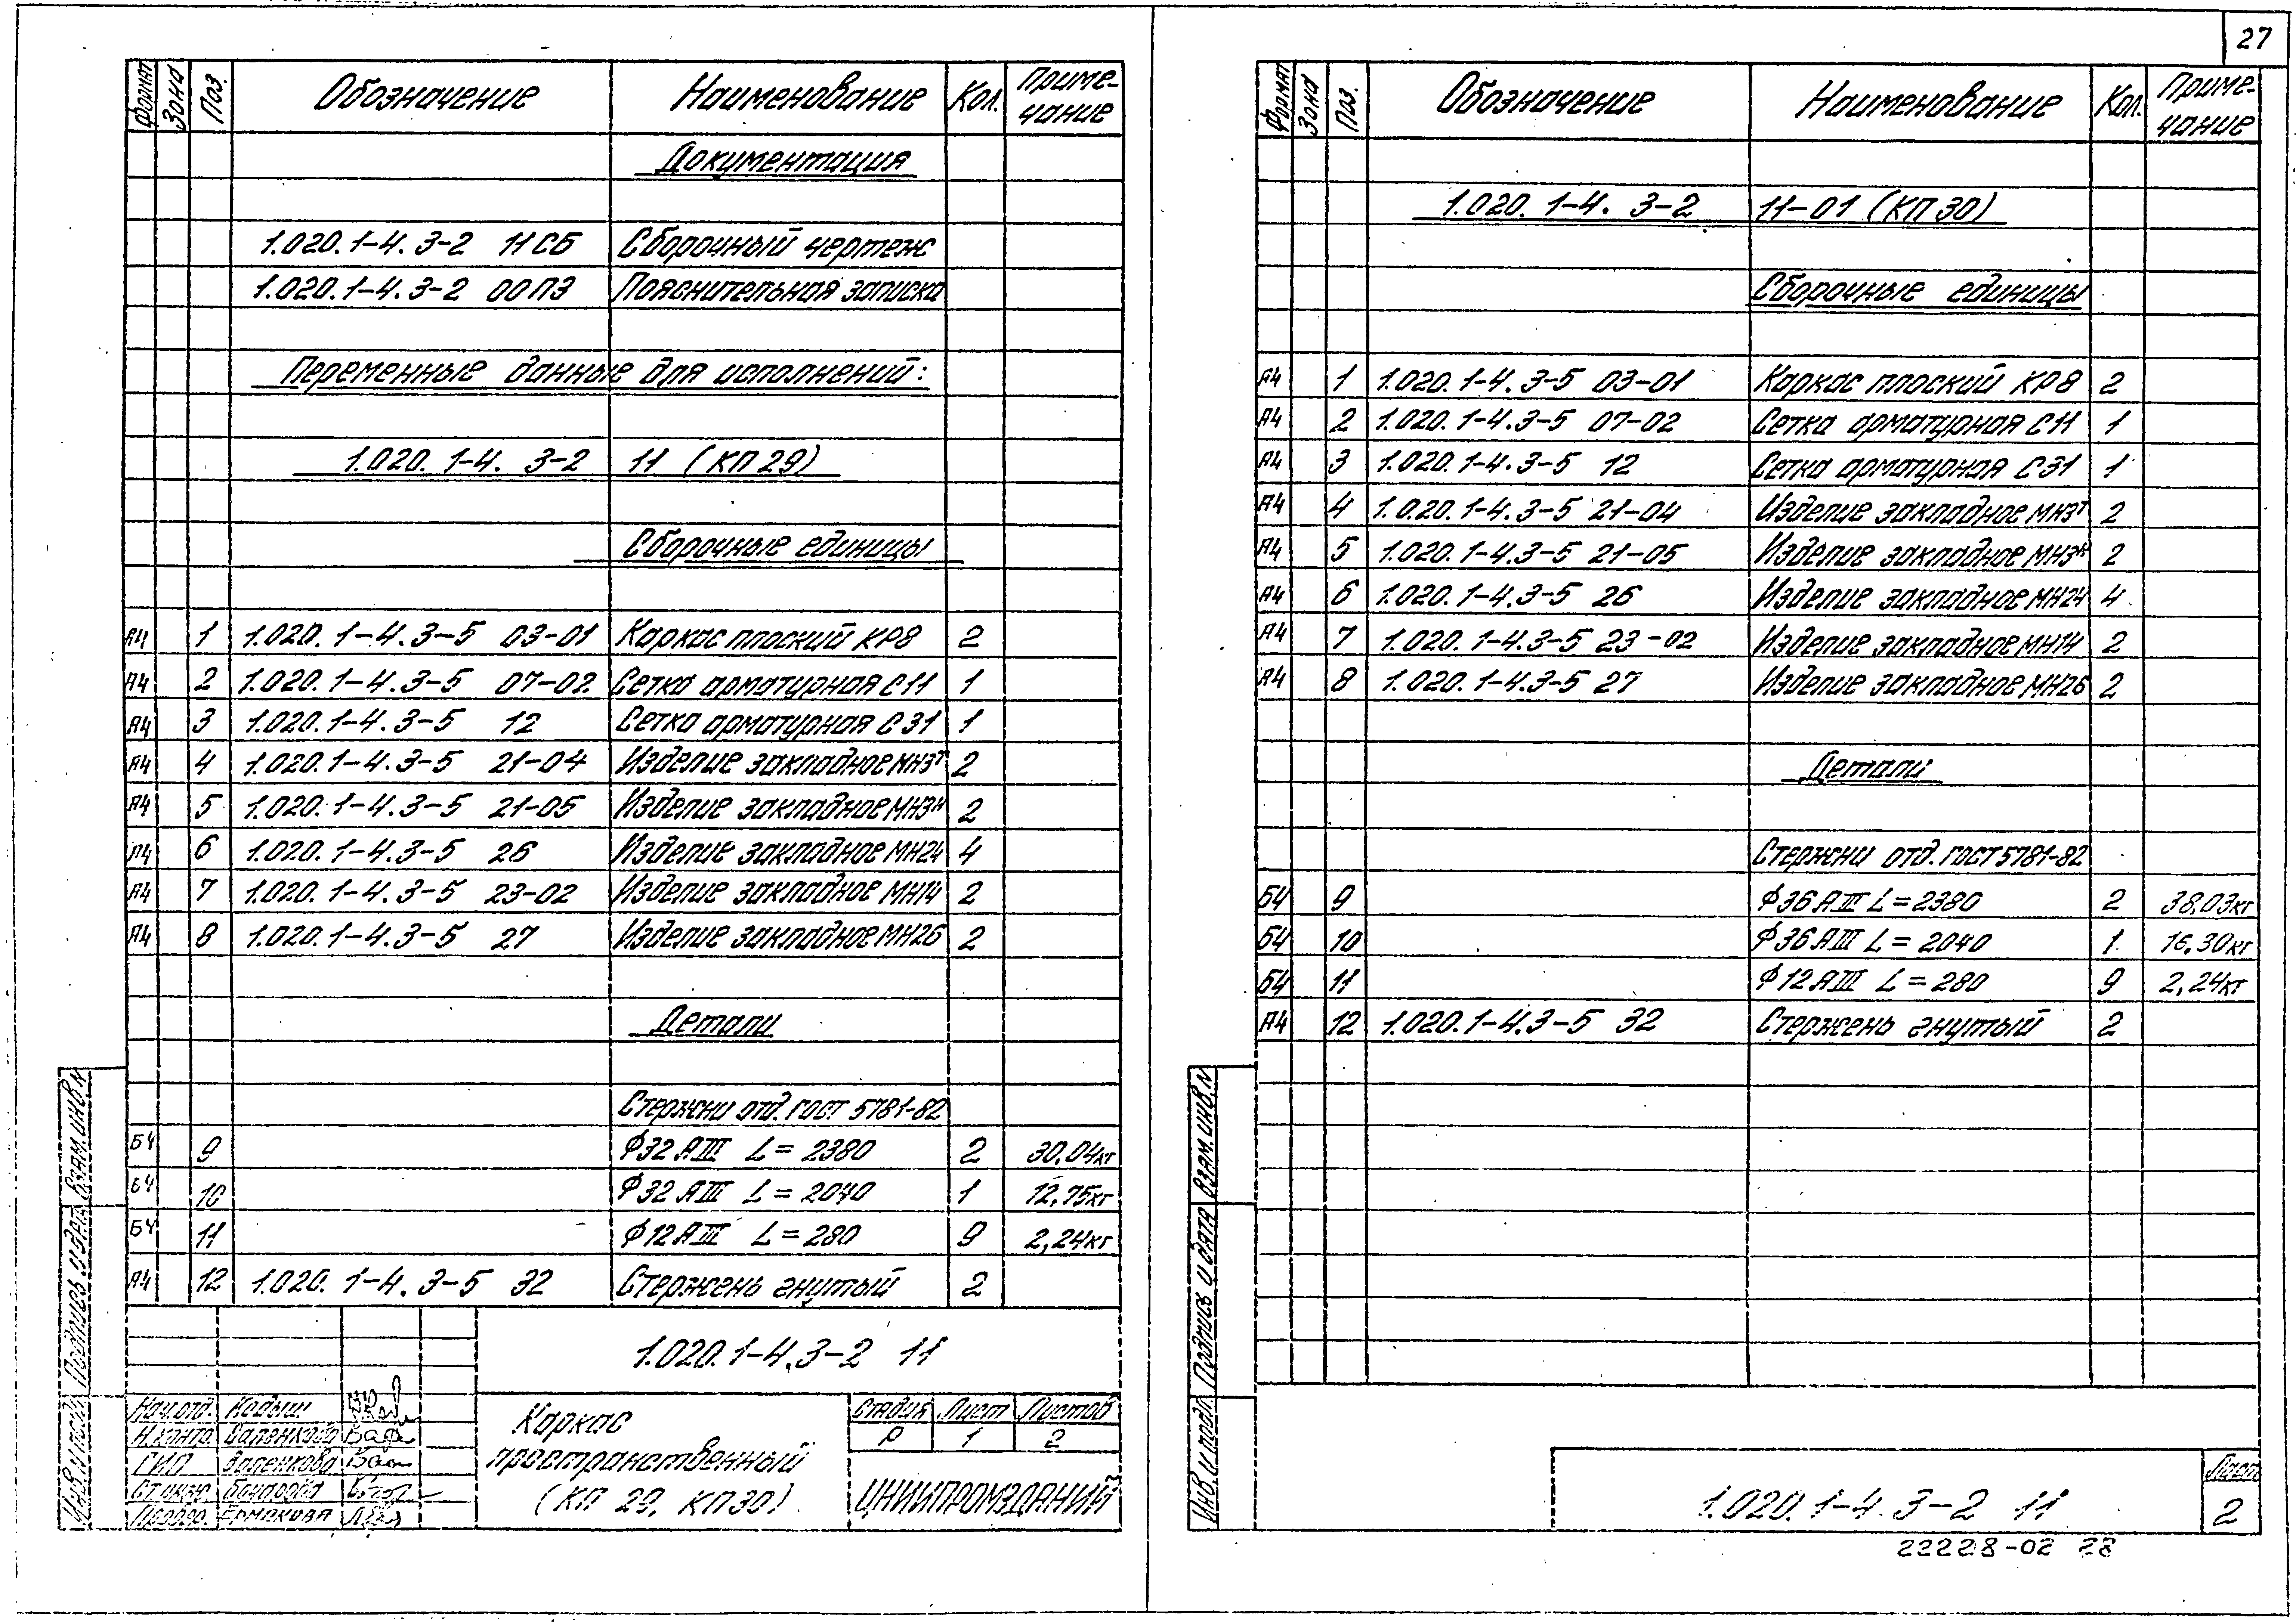 27
Формат Зона Поз. Обозначение Наименование Кол. Приме-чание
Документация
1.020.1-4.3-2 11СБ Сборочный чертеж
1.020.1-4.3-2 00ПЗ Пояснительная записка
Переменные данные для исполнений:
1.020.1-4.3-2 11 (КП29)
Сборочные единицы
А4 1 1.020.1-4.3-5 03-01 Каркас плоский КР8 2
А4 2 1.020.1-4.3-5 07-02 Сетка арматурная С11 1
А4 3 1.020.1-4.3-5 12 Сетка арматурная С31 1
А4 4 1.020.1-4.3-5 21-04 Изделие закладное МН3т 2
А4 5 1.020.1-4.3-5 21-05 Изделие закладное МН3н 2
А4 6 1.020.1-4.3-5 26 Изделие закладное МН24 4
А4 7 1.020.1-4.3-5 23-02 Изделие закладное МН14 2
А4 8 1.020.1-4.3-5 27 Изделие закладное МН26 2
Детали
Стержни отд. ГОСТ 5781-82
БЧ 9 Ф32 АIII L=2380 2 30,04кг
БЧ 10 Ф32 АIII L=2040 1 12,75кг
БЧ 11 Ф12 АIII L=280 9 2,24кг
А4 12 1.020.1-4.3-5 32 Стержень гнутый 2
1.020.1-4.3-2 11
Нач.отд. Кодыш
Н.контр. Валенкова
ГИП Валенкова
Ст.инж. Бочарова
Провер. Ермакова
Каркас
пространственный
(КП 29, КП30)
Стадия Лист Листов
Р 1 2
ЦНИИПРОМЗДАНИЙ
Инв.N подл. Подпись и дата Взам.инв.N
Формат Зона Поз. Обозначение Наименование Кол. Приме-чание
1.020.1-4.3-2 11-01 (КП30)
Сборочные единицы
А4 1 1.020.1-4.3-5 03-01 Каркас плоский КР8 2
А4 2 1.020.1-4.3-5 07-02 Сетка арматурная С11 1
А4 3 1.020.1-4.3-5 12 Сетка арматурная С31 1
А4 4 1.020.1-4.3-5 21-04 Изделие закладное МН3т 2
А4 5 1.020.1-4.3-5 21-05 Изделие закладное МН3н 2
А4 6 1.020.1-4.3-5 26 Изделие закладное МН24 4
А4 7 1.020.1-4.3-5 23-02 Изделие закладное МН14 2
А4 8 1.020.1-4.3-5 27 Изделие закладное МН26 2
Детали
Стержни отд. ГОСТ 5781-82
БЧ 9 Ф36 АIII L=2380 2 38,03кг
БЧ 10 Ф36 АIII L=2040 1 16,30кг
БЧ 11 Ф12 АIII L=280 9 2,24кг
А4 12 1.020.1-4.3-5 32 Стержень гнутый 2
Инв.N подл. Подпись и дата Взам.инв.N
1.020.1-4.3-2 11
Лист
2
22228-02 28